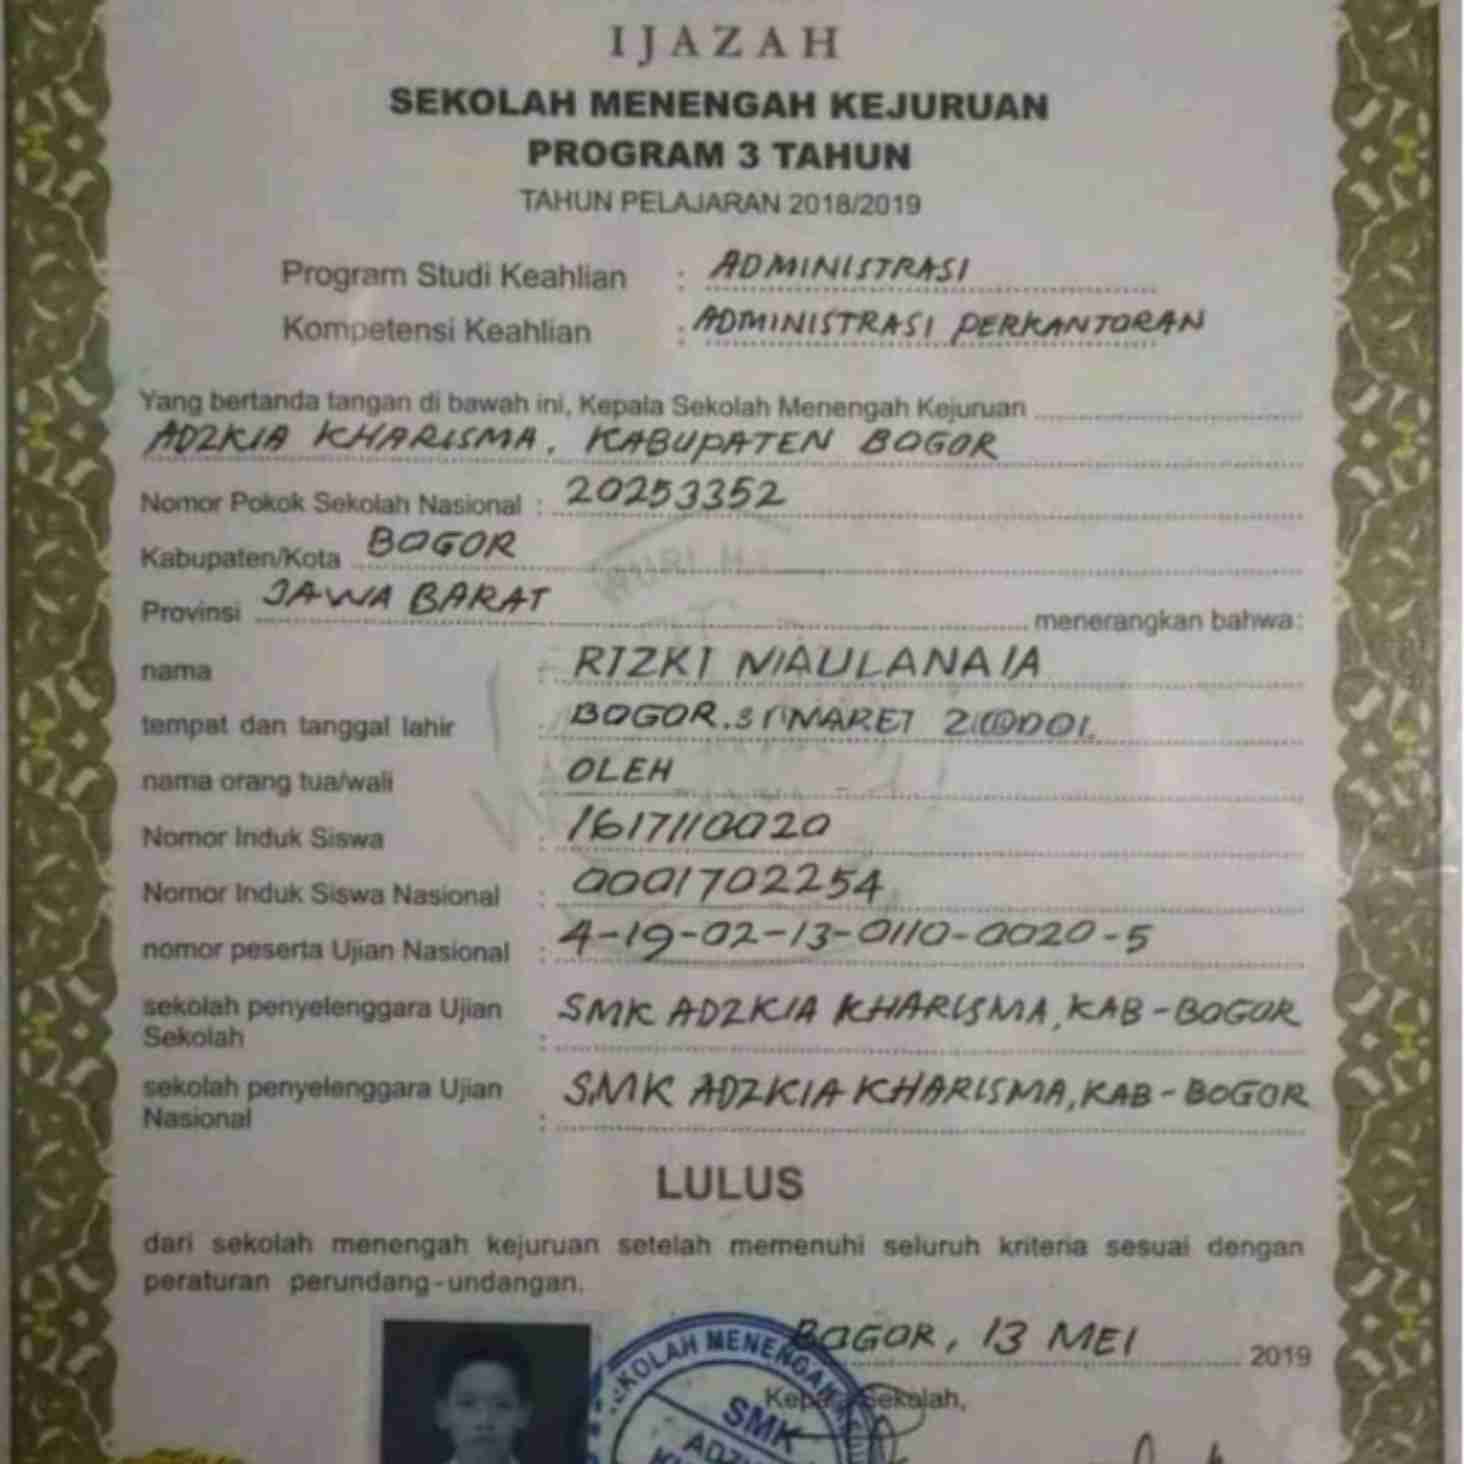 IJAZAH
SEKOLAH MENENGAH KEJURUAN
PROGRAM 3 TAHUN
TAHUN PELAJARAN 2018/2019
Program Studi Keahlian : ADMINISTRASI
Kompetensi Keahlian : ADMINISTRASI PERKANTORAN
Yang bertanda tangan di bawah ini, Kepala Sekolah Menengah Kejuruan
ADZKIA KHARISMA, KABUPATEN BOGOR
Nomor Pokok Sekolah Nasional : 20253352
Kabupaten/Kota BOGOR
Provinsi JAWA BARAT menerangkan bahwa:
nama : RIZKI MAULANA
tempat dan tanggal lahir : BOGOR. MARET
nama orang tua/wali : OLEH
Nomor Induk Siswa : 1617110020
Nomor Induk Siswa Nasional : 0001702254
nomor peserta Ujian Nasional : 4-19-02-13-0110-0020-5
sekolah penyelenggara Ujian Sekolah : SMK ADZKIA KHARISMA, KAB-BOGOR
sekolah penyelenggara Ujian Nasional : SMK ADZKIA KHARISMA, KAB-BOGOR
LULUS
dari sekolah menengah kejuruan setelah memenuhi seluruh kriteria sesuai dengan
peraturan perundang-undangan.
BOGOR, 13 MEI 2019
Kepala Sekolah,
SEKOLAH MENENGAH
SMK